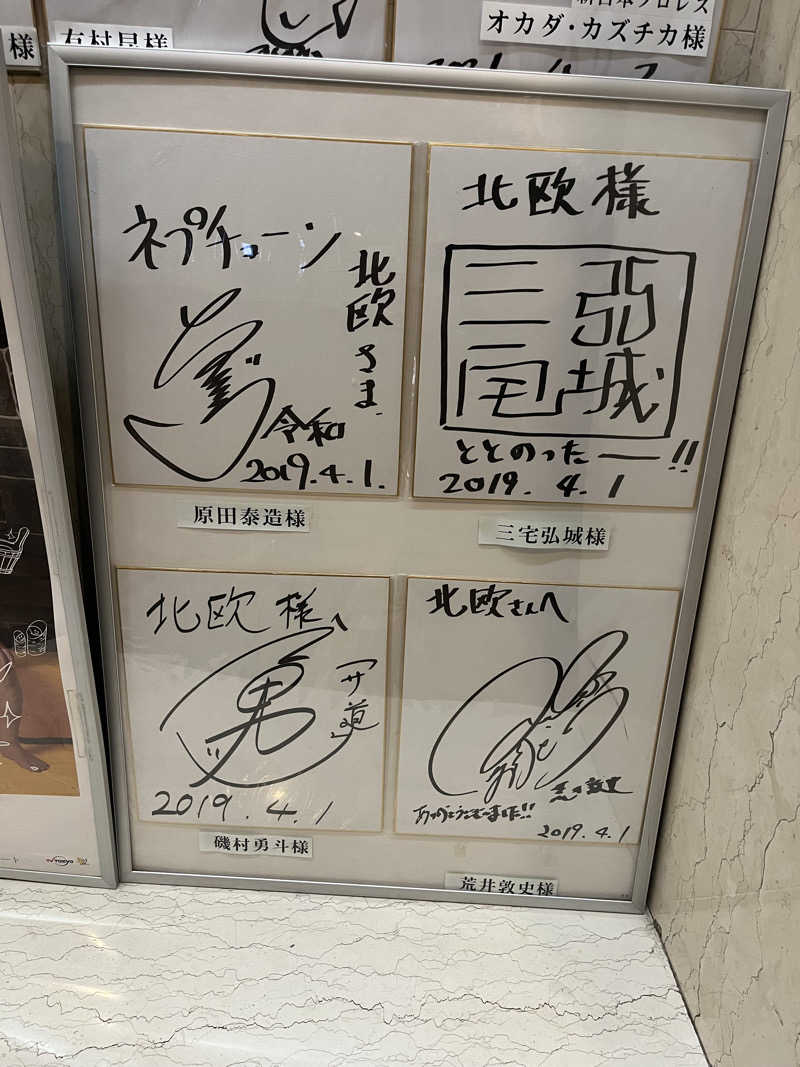 様
有村昆様
新日本プロレス
オカダ・カズチカ様
ネプチューン
北欧さま
令和
2019.4.1.
原田泰造様
北欧様
三宅弘城
ととのったー!!
2019.4.1
三宅弘城様
北欧様へ
「サ道」
2019.4.1
磯村勇斗様
北欧さんへ
ありがとうございました!!
2019.4.1
荒井敦史様
TV TOKYO